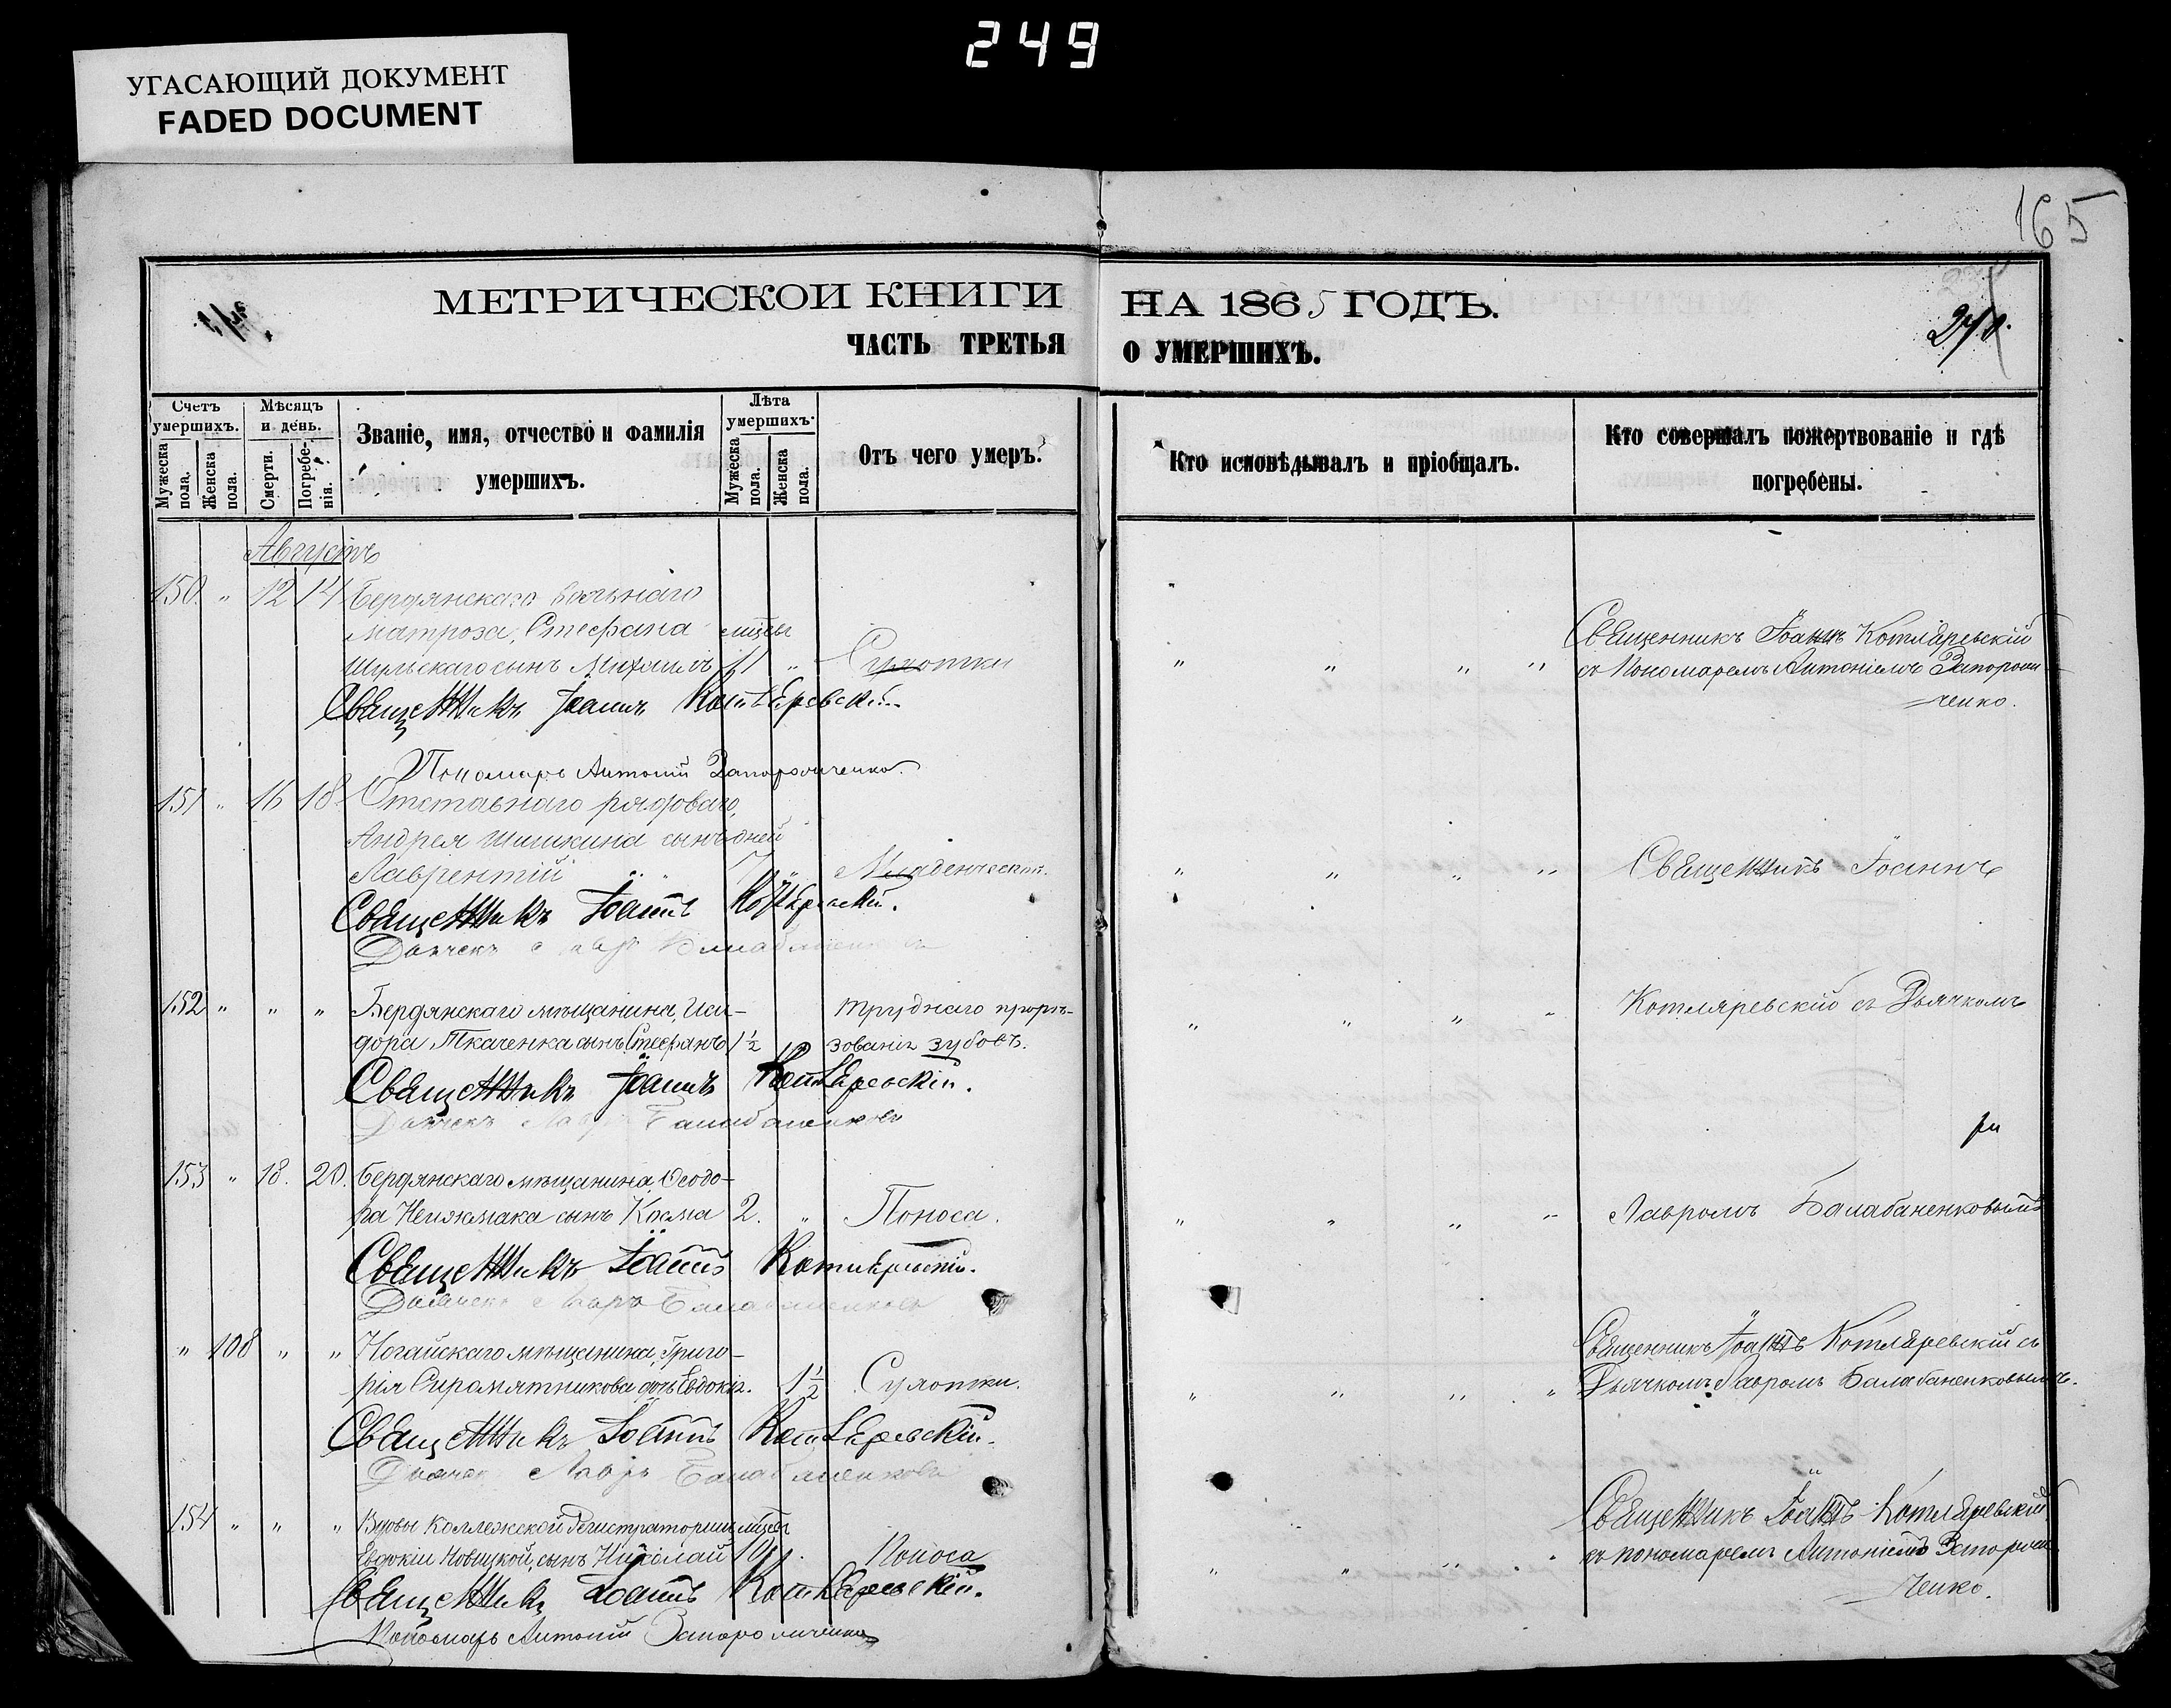 249
УГАСАЮЩИЙ ДОКУМЕНТ
FADED DOCUMENT
165
МЕТРИЧЕСКОИ КНИГИ НА 1865 ГОДЪ.
ЧАСТЬ ТРЕТЬЯ О УМЕРШИХЪ.
270.
Счетъ умершихъ.
Мужеска пола.
Женска пола.
Мѣсяцъ и день.
Смерти.
Погребенія.
Званіе, имя, отчество и фамилія умершихъ.
Лѣта умершихъ
Мужеска пола.
Женска пола.
Отъ чего умеръ?
Кто исповѣдывалъ и пріобщалъ.
Кто совершалъ пожертвованіе и гдѣ погребены.
Августъ
150. " 12 14 Бердянскаго больнаго
матроза, Стефана мцсы Священникъ Іоаннъ Котляревскій
Шульскаго сынъ Михаилъ 11 " Сухотки " " " " съ Пономаремъ Антоніемъ Запорожченко.
Священникъ Іоаннъ Котляревскій.
Пономарь Антоній Запорожченко.
151 " 16 18 Отставнаго рядоваго,
Андрея Шишкина сынъ дней
Лаврентій 7 " Младенческой. " " " " Священникъ Іоаннъ
Священникъ Іоаннъ Котляревскій.
Дьячекъ Лавръ Балабаненковъ
152 " " " Бердянскаго мѣщанина, Иси- труднаго прорѣ- " " " " Котляревскій съ Дьячкомъ
дора Ткаченка сынъ Стефанъ 1½ зованія зубовъ.
Священникъ Іоаннъ Котляревскій.
Дьячекъ Лавръ Балабаненковъ
153 " 18. 20. Бердянскаго мѣщанина, Ѳеодо-
ра Неижмака сынъ Косма 2. " Поноса. " " " " Лавромъ Балабаненковымъ
Священникъ Іоаннъ Котляревскій.
Дьячекъ Лавръ Балабаненковъ
" 108 " " Ногайскаго мѣщанина, Григо- Священникъ Іоаннъ Котляревскій съ
рія Сиромятникова дочь Евдокія. 1½ Сухотки. " " " " Дьячкомъ Лавромъ Балабаненковымъ.
Священникъ Іоаннъ Котляревскій.
Дьячекъ Лавръ Балабаненковъ
154 " " " Вдовы Коллежской Регистраторши мцсы Священникъ Іоаннъ Котляревскій
Евдокіи Новицкой, сынъ Николай 10 Поноса " " " " съ пономаремъ Антоніемъ Запорожченко.
Священникъ Іоаннъ Котляревскій.
Пономарь Антоній Запорожченко